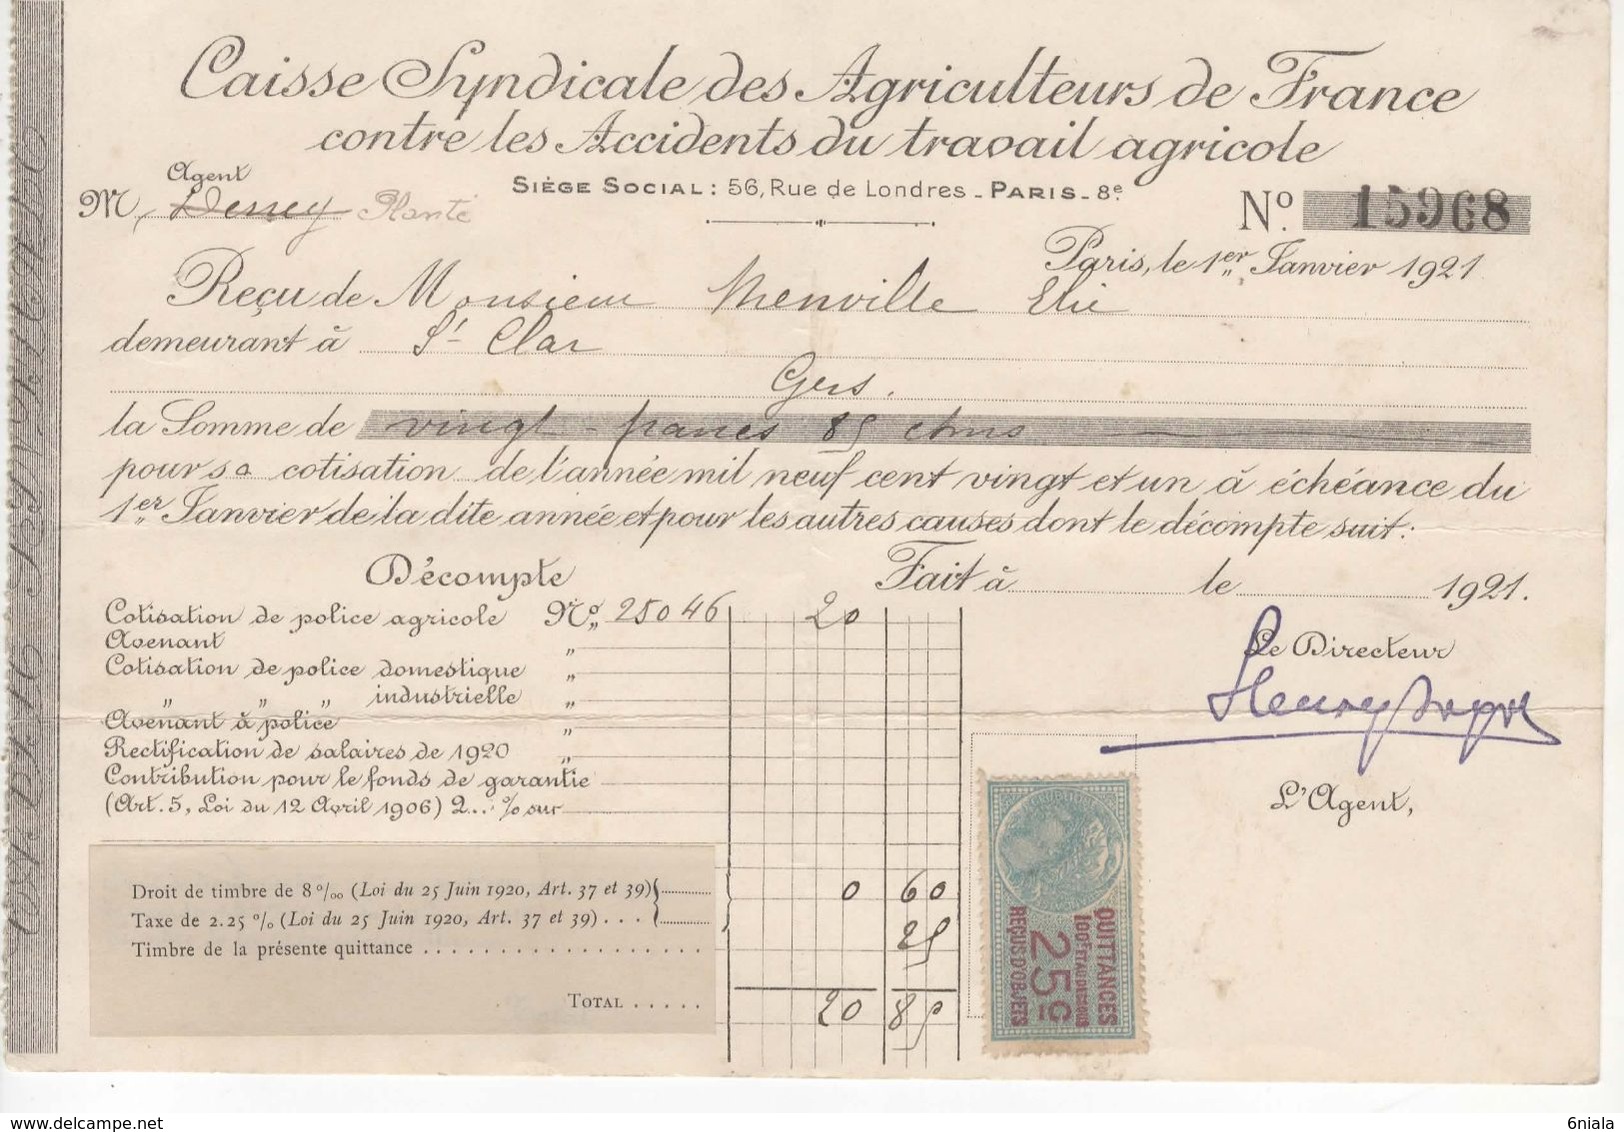 Caisse Syndicale des Agriculteurs de France
contre les Accidents du travail agricole
Siège Social: 56, Rue de Londres - Paris - 8e.
Agent
M, Planté
No. 15968
Paris, le 1er Janvier 1921
Reçu de Monsieur Menville Elie
demeurant à St Clar
Gers.
la Somme de vingt - francs 85 ctms
pour sa cotisation de l'année mil neuf cent vingt et un à échéance du
1er Janvier de la dite année et pour les autres causes dont le décompte suit:
Décompte
Fait à le 1921.
Cotisation de police agricole No 25046 20
Avenant "
Cotisation de police domestique "
" " " industrielle "
Avenant à police "
Rectification de salaires de 1920 "
Contribution pour le fonds de garantie
(Art. 5, Loi du 12 Avril 1906) 2.. % sur
Le Directeur
L'Agent,
Droit de timbre de 8 ‰ (Loi du 25 Juin 1920, Art. 37 et 39) 0 60
Taxe de 2.25 % (Loi du 25 Juin 1920, Art. 37 et 39) . . .
Timbre de la présente quittance 25
Total . . . . . 20 85
QUITTANCES
25c
REÇUS D'OBJETS
6niala